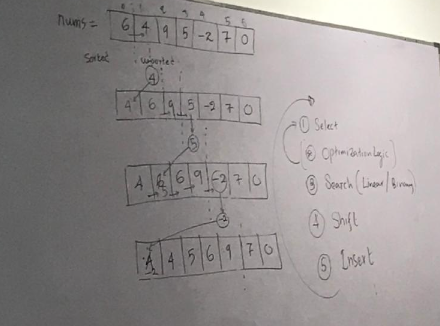 nums = 6 4 9 5 -2 7 0
Sorted unsorted
4
4 6 9 5 -2 7 0
5
4 6 9 -2 7 0
-2
4 5 6 9 7 0
① Select
② Optimization Logic
③ Search (Linear / Binary)
④ Shift
⑤ Insert